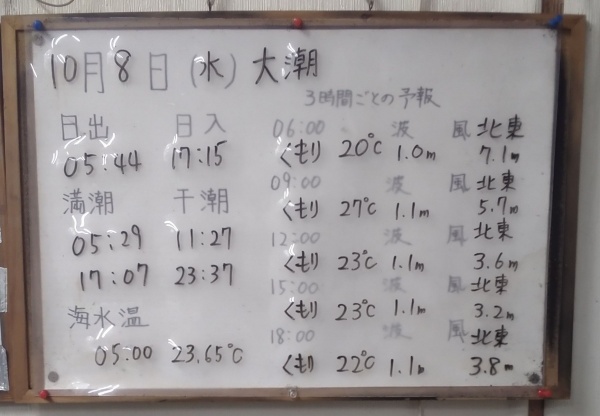 10月8日(水)大潮
3時間ごとの予報
日出 日入
05:44 17:15
満潮 干潮
05:29 11:27
17:07 23:37
海水温
05:00 23.65℃
06:00 波 風 北東
くもり 20℃ 1.0m 7.1m
09:00 波 風 北東
くもり 27℃ 1.1m 5.7m
12:00 波 風 北東
くもり 23℃ 1.1m 3.6m
15:00 波 風 北東
くもり 23℃ 1.1m 3.2m
18:00 波 風 北東
くもり 22℃ 1.1m 3.8m